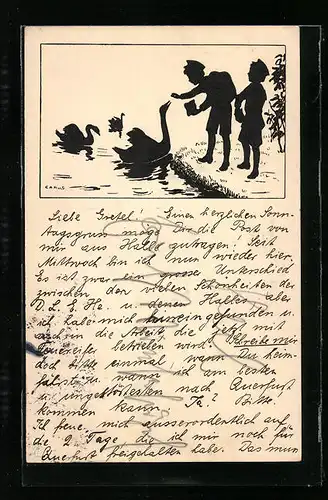 CARUS
Liebe Gretel! Einen herzlichen Sonn-
tagsgruss möge Dir die Post von
mir aus Halle zutragen! Seit
Mittwoch bin ich nun wieder hier.
Es ist zwar ein grosser Unterschied
zwischen den vielen Schönheiten der
u. denen Halles, aber
ich habe mich hineingefunden u.
auch in die Arbeit, die jetzt mit
Feuereifer betrieben wird. Schreibe mir
doch bitte einmal, wann Du heim-
fährst u. wann ich am besten
u. ungestörtesten nach Querfurt
kommen kann. Ja? Bitte!
Ich freue mich ausserordentlich auf
die 2 Tage, die ich mir noch für
Querfurt freigehalten habe. Das nun